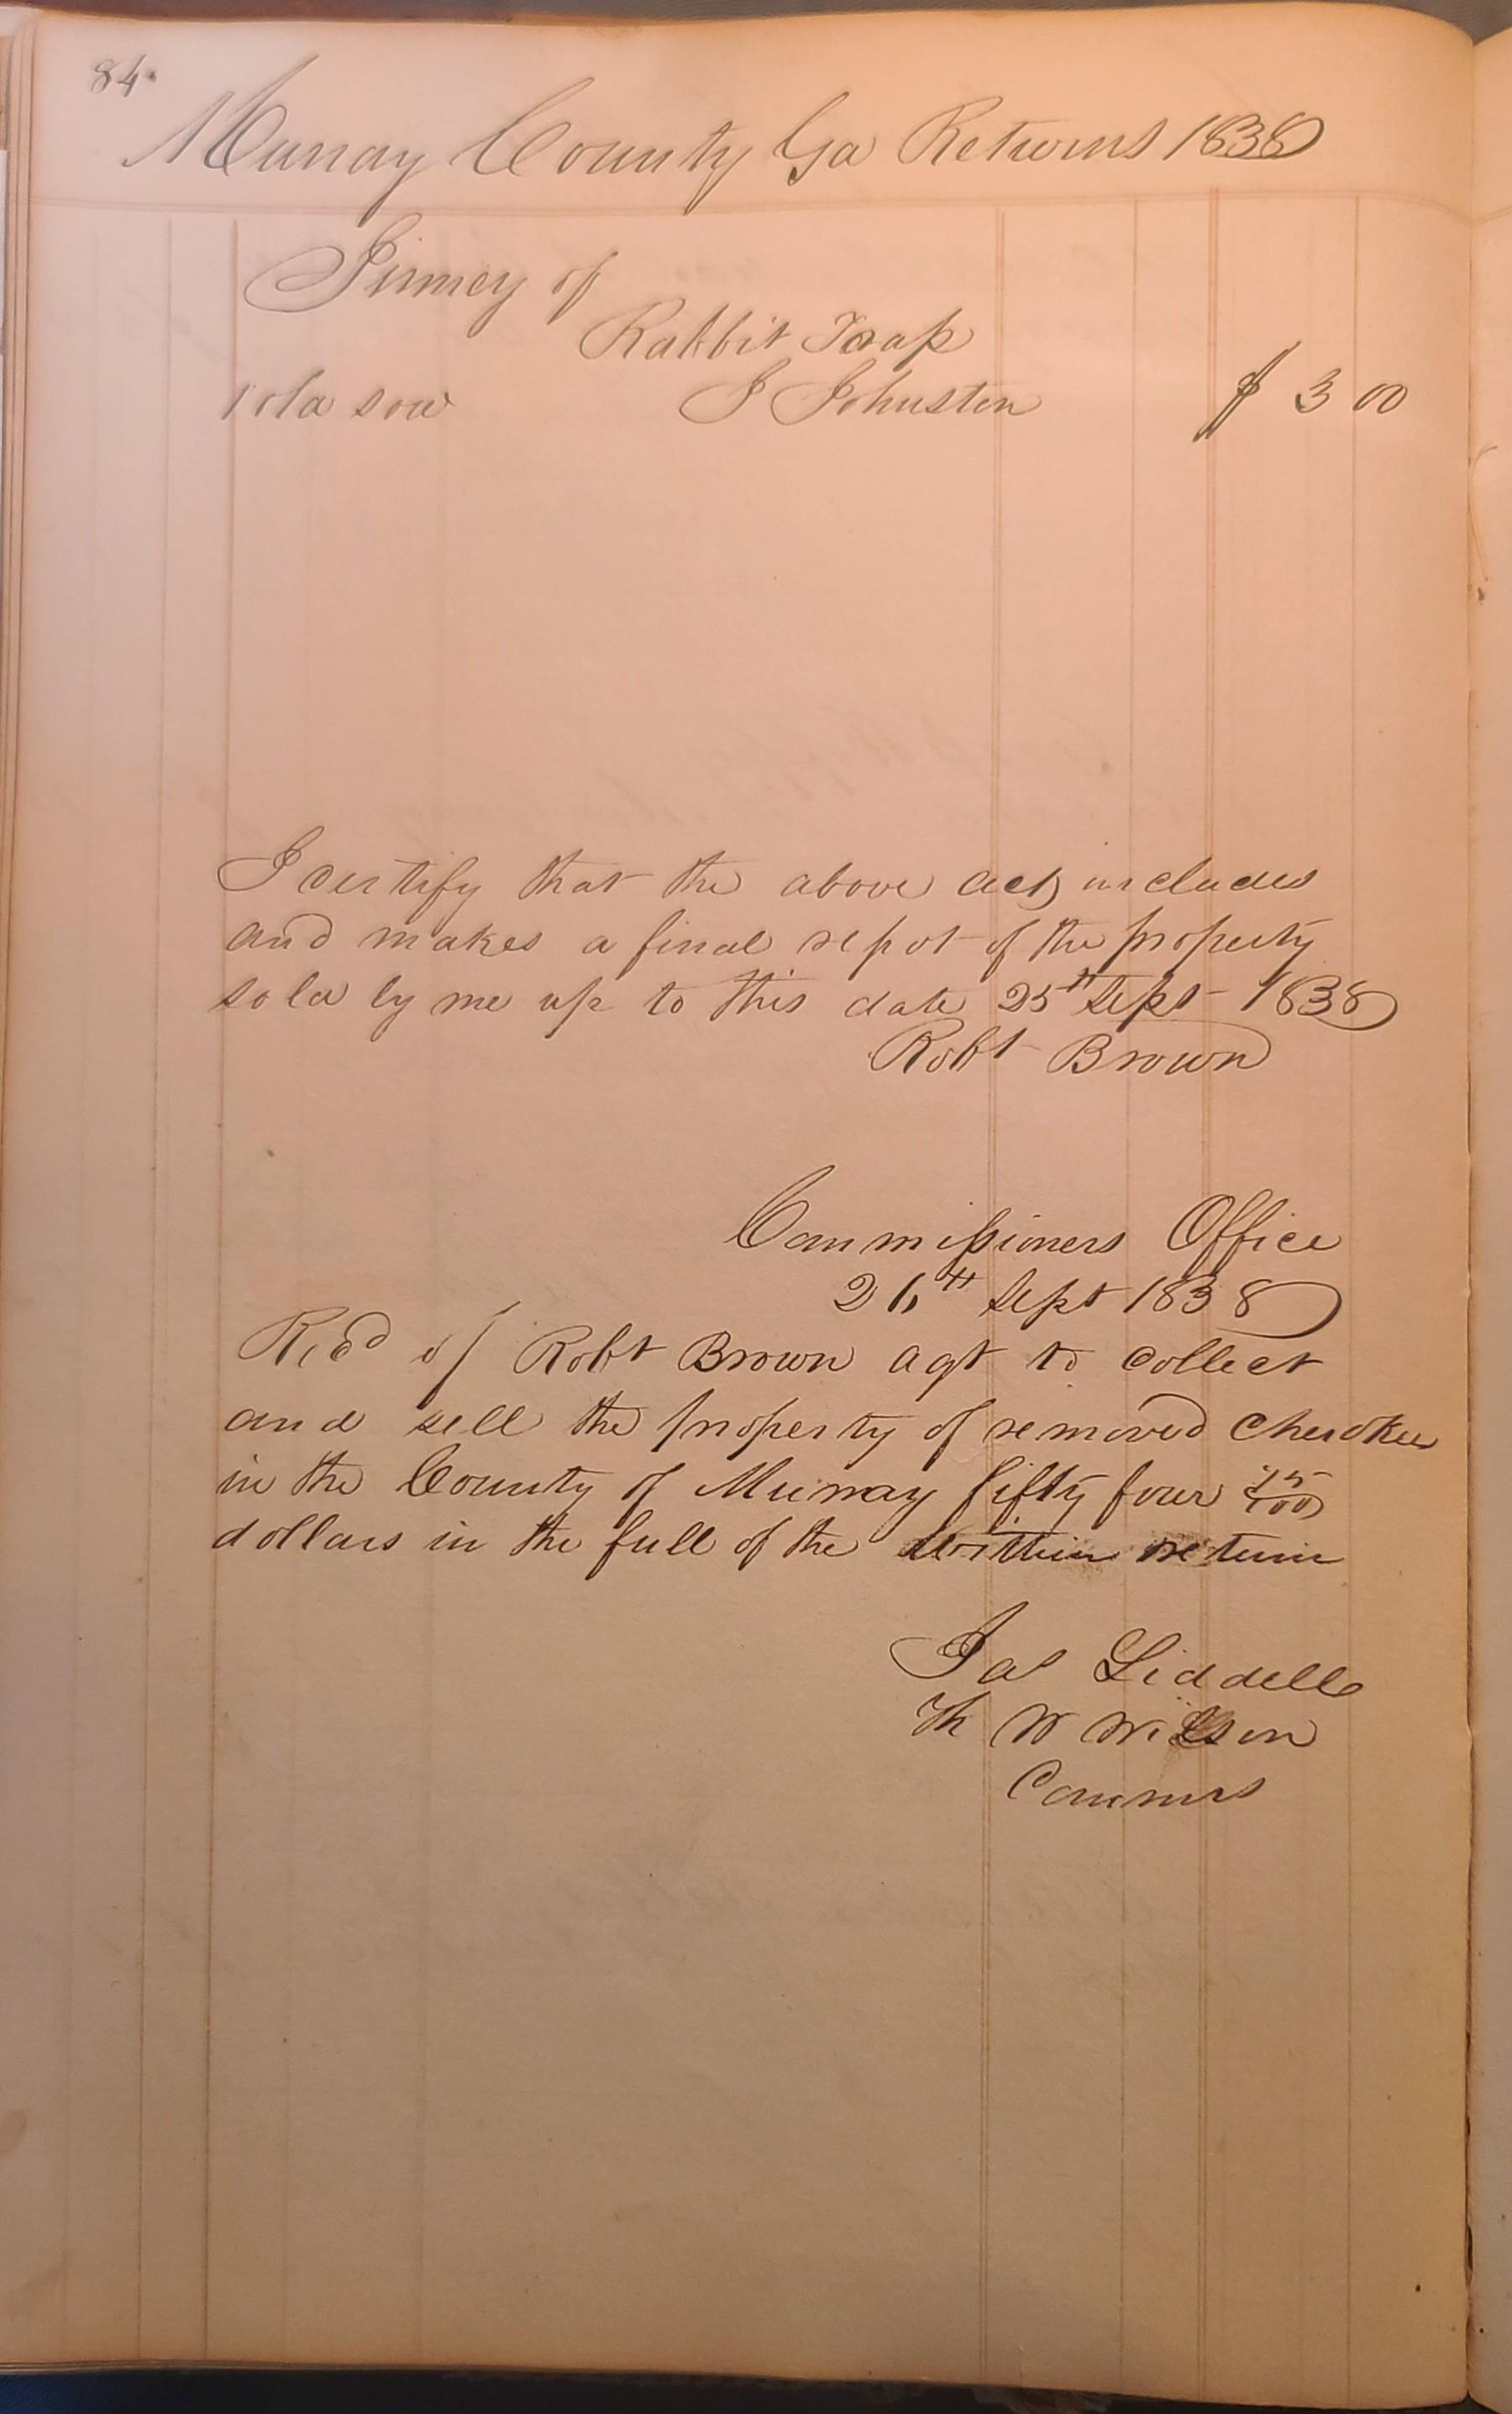 84.
Murray County Ga Returns 1838
Jinney of
Rabbit Trap
1 old sow J Johnston $ 3 00
I certify that the above act includes
and makes a final repot of the property
sold by me up to this date 25th Sept 1838
Robt Brown
Commissioners Office
26th Sept 1838
Recd of Robt Brown agt to collect
and sell the property of removed Cherokees
in the County of Murray fifty four 75/100
dollars in the full of the within return
Jas Liddell
Th W Wilson
Commrs